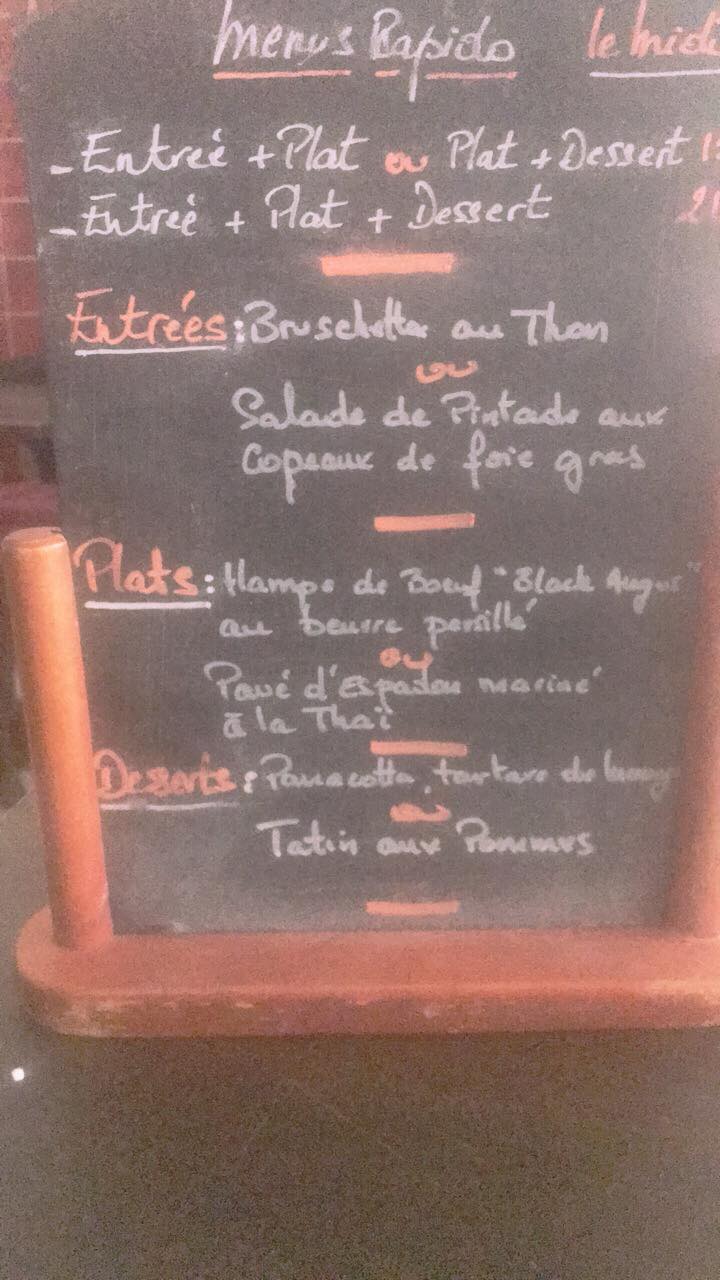 Menus Rapido le midi
- Entreé + Plat ou Plat + Dessert
- Entreé + Plat + Dessert
Entrées : Bruschetta au Thon
ou
Salade de Pintade aux
Copeaux de foie gras
Plats : Hampe de Boeuf "Black Angus"
au beurre persillé
ou
Pavé d'Espadon mariné
à la Thaï
Desserts : Panacotta, tartare de
ou
Tatin aux Pommes